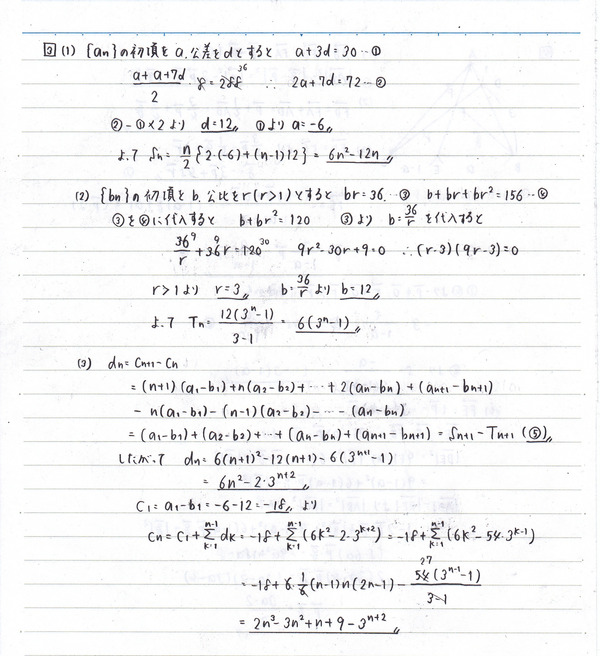 3 (1) {an}の初項をa.公差をdとすると a+3d=30…①
(a+a+7d)/2・8=288 36 ∴ 2a+7d=72…②
②-①×2より d=12〃 ①よりa=-6〃
よって Sn=n/2{2・(-6)+(n-1)12}=6n²-12n〃
(2) {bn}の初項をb.公比をr(r>1)とすると br=36…③ b+br+br²=156…④
③を④に代入すると b+br²=120 ③より b=36/rを代入すると
36⁹/r+36⁹r=120³⁰ 9r²-30r+9=0 ∴(r-3)(9r-3)=0
r>1より r=3〃 b=36/rより b=12〃
よって Tn=12(3ⁿ-1)/(3-1)=6(3ⁿ-1)〃
(3) dn=Cn+1-Cn
=(n+1)(a1-b1)+n(a2-b2)+…+2(an-bn)+(an+1-bn+1)
-n(a1-b1)-(n-1)(a2-b2)-…-(an-bn)
=(a1-b1)+(a2-b2)+…+(an-bn)+(an+1-bn+1)=Sn+1-Tn+1(⑤)〃
したがって dn=6(n+1)²-12(n+1)-6(3ⁿ⁺¹-1)
=6n²-2・3ⁿ⁺²〃
C1=a1-b1=-6-12=-18〃より
Cn=C1+Σ[k=1,n-1]dk=-18+Σ[k=1,n-1](6k²-2・3ᵏ⁺²)=-18+Σ[k=1,n-1](6k²-54・3ᵏ⁻¹)
=-18+6・1/6(n-1)n(2n-1)-54 27(3ⁿ⁻¹-1)/(3-1)
=2n³-3n²+n+9-3ⁿ⁺²〃